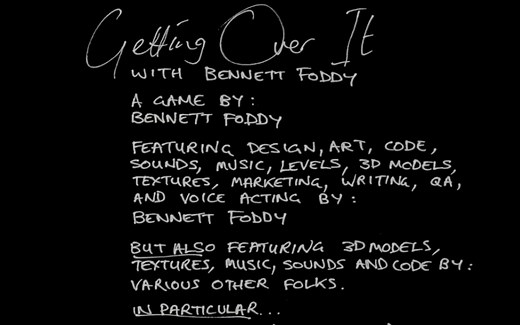 Getting Over It
WITH BENNETT FODDY
A GAME BY:
BENNETT FODDY
FEATURING DESIGN, ART, CODE,
SOUNDS, MUSIC, LEVELS, 3D MODELS,
TEXTURES, MARKETING, WRITING, QA,
AND VOICE ACTING BY:
BENNETT FODDY
BUT ALSO FEATURING 3D MODELS,
TEXTURES, MUSIC, SOUNDS AND CODE BY:
VARIOUS OTHER FOLKS.
IN PARTICULAR...